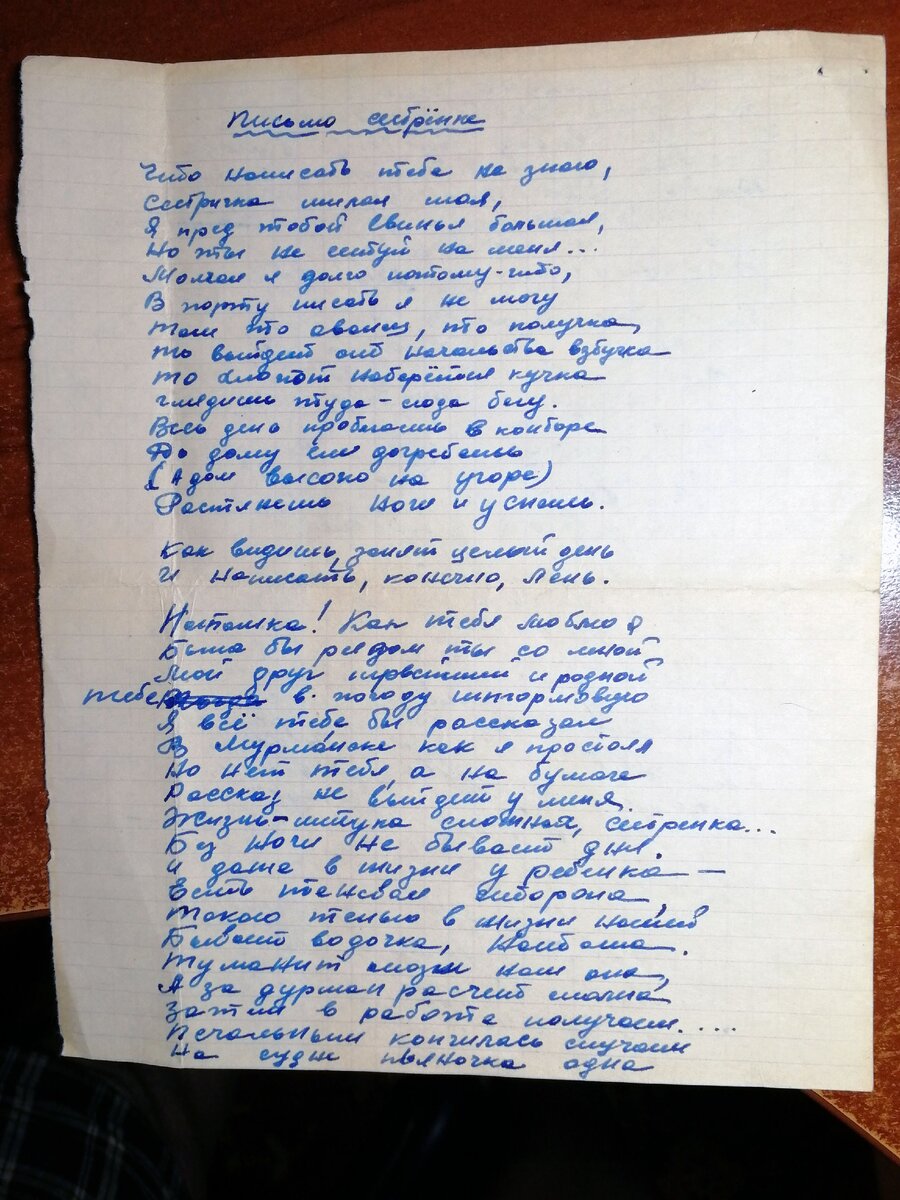 Письмо сестрёнке
Что написать тебе не знаю,
Сестричка милая моя,
Я пред тобой свинья большая,
Но ты не сетуй на меня...
Молчал я долго потому-что,
В порту писать я не могу
Там то аванец, то получка,
то выйдет от начальства взбучка
то хлопот наберётся кучка
глядишь туда-сюда бегу.
Весь день пробегаешь в конторе
До дому еле догребёшь
(А дом высоко на угоре)
Растянешь ноги и уснёшь.
Как видишь, занят целый день
И написать, конечно, лень.
Наташка! Как тебя люблю я
Была бы рядом ты со мной
Мой друг первейший и родной
тебе в погоду штормовую
Я всё тебе бы рассказал
В Мурманске как я простоял
Но нет тебя, а на бумаге
Рассказ не выйдет у меня.
Жизнь-штука сложная, сестренка...
Без ночи не бывает дня.
И даже в жизни у ребенка—
Есть теневая сторона
Такою тенью в жизни нашей
Бывает водочка, Наташа.
Туманит мозги нам она,
А за дурман расчет сполна
Затем в работе получаем....
Печальным кончилась случаем
На судне пьяночка одна